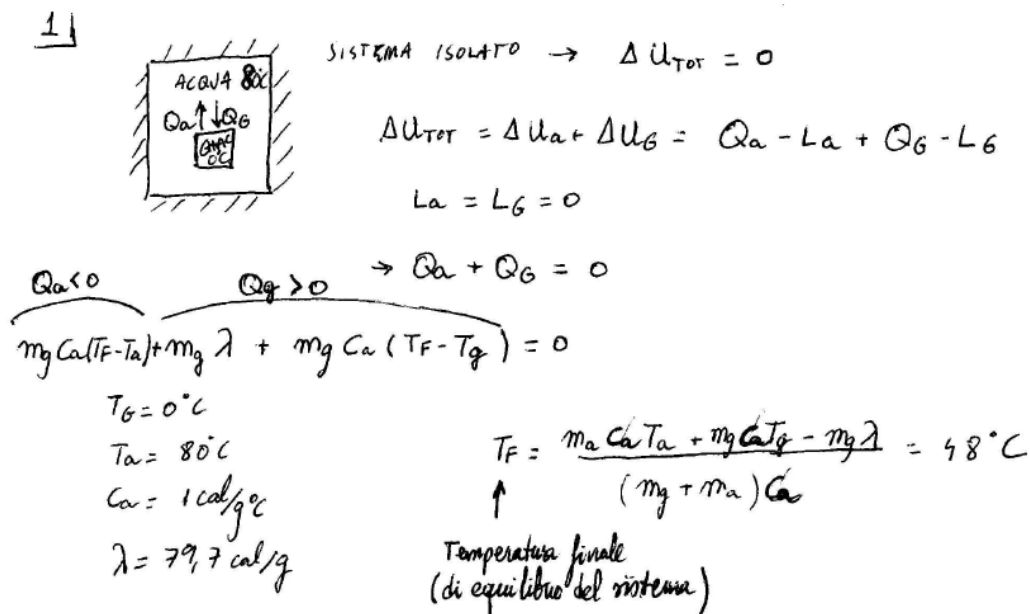 1
SISTEMA ISOLATO → ΔU_TOT = 0
ACQUA 80°C
Qa ↑ ↓ QG
0°C
ΔU_TOT = ΔUa + ΔUG = Qa - La + QG - LG
La = LG = 0
→ Qa + QG = 0
Qa<0 Qg>0
mg Ca(TF-Ta)+mg λ + mg Ca (TF-Tg) = 0
TG = 0°C
Ta = 80°C
Ca = 1 cal/g°C
λ = 79,7 cal/g
TF = (ma Ca Ta + mg Ca Tg - mg λ) / ((mg + ma) Ca) = 48°C
↑
Temperatura finale
(di equilibrio del sistema)